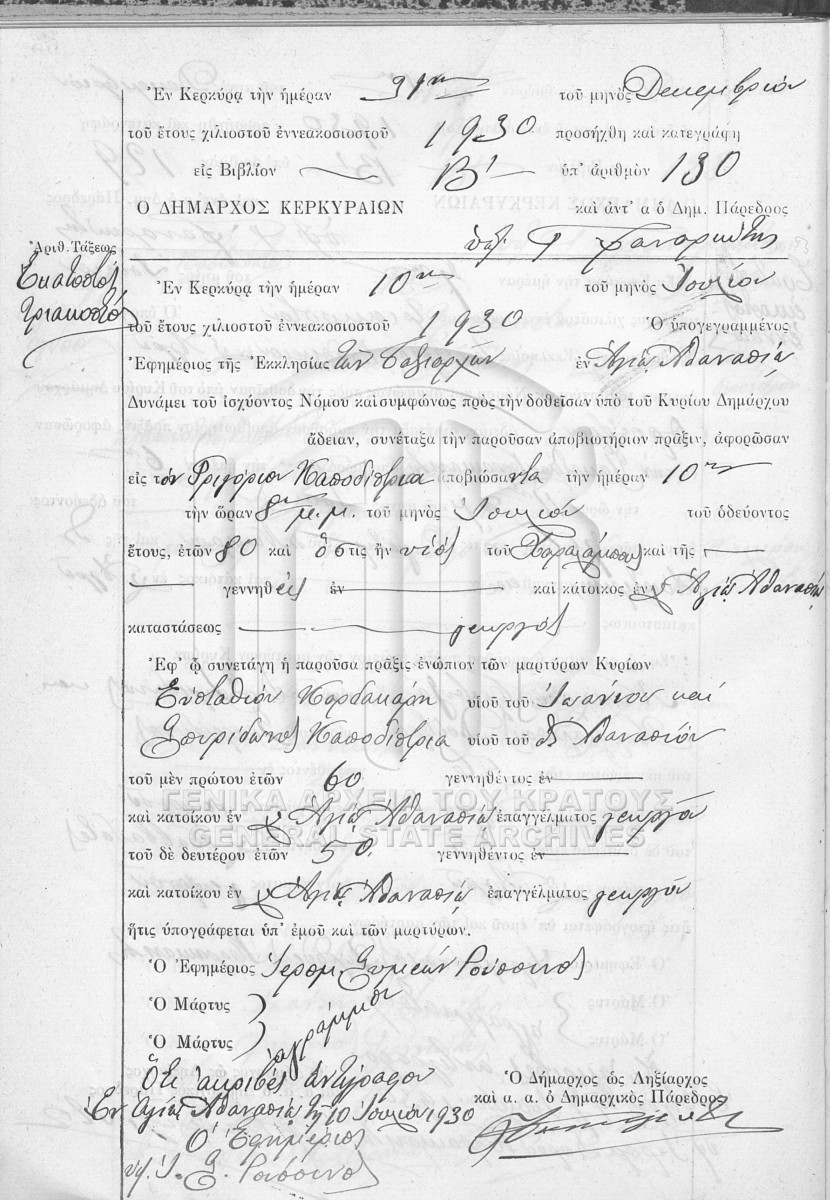 Ἐν Κερκύρᾳ τὴν ἡμέραν 31ην τοῦ μηνὸς Δεκεμβρίου
τοῦ ἔτους χιλιοστοῦ ἐννεακοσιοστοῦ 1930 προσήχθη καὶ κατεγράφη
εἰς Βιβλίον Β' ὑπ' ἀριθμὸν 130
Ο ΔΗΜΑΡΧΟΣ ΚΕΡΚΥΡΑΙΩΝ καὶ ἀντ' α ὁ Δημ. Πάρεδρος
Ἀριθ. Τάξεως
Ἑκατοστὸς
τριακοστὸς
Ἐν Κερκύρᾳ τὴν ἡμέραν 10ην τοῦ μηνὸς Ἰουλίου
τοῦ ἔτους χιλιοστοῦ ἐννεακοσιοστοῦ 1930 Ὁ ὑπογεγραμμένος
Ἐφημέριος τῆς Ἐκκλησίας τῶν Ταξιαρχῶν ἐν Ἁγίῳ Ἀθανασίῳ
Δυνάμει τοῦ ἰσχύοντος Νόμου καὶ συμφώνως πρὸς τὴν δοθεῖσαν ὑπὸ τοῦ Κυρίου Δημάρχου
ἄδειαν, συνέταξα τὴν παροῦσαν ἀποβιωτήριον πρᾶξιν, ἀφορῶσαν
εἰς τὸν Γριγόριον Καποδίστρια ἀποβιώσαντα τὴν ἡμέραν 10ην
τὴν ὥραν 8ην μ.μ. τοῦ μηνὸς Ἰουλίου τοῦ ὁδεύοντος
ἔτους, ἐτῶν 80 καὶ ὅστις ἦν υἱὸς τοῦ Χαραλάμπους καὶ τῆς
γεννηθεὶς ἐν καὶ κάτοικος ἐν Ἁγίῳ Ἀθανασίῳ
καταστάσεως γεωργὸς
Ἐφ' ᾧ συνετάγη ἡ παροῦσα πρᾶξις ἐνώπιον τῶν μαρτύρων Κυρίων
Εὐσταθίου Καρδακάρη υἱοῦ τοῦ Ἰωάννου καὶ
Σπυρίδωνος Καποδίστρια υἱοῦ τοῦ Ἀθανασίου
τοῦ μὲν πρώτου ἐτῶν 60 γεννηθέντος ἐν
ΓΕΝΙΚΑ ΑΡΧΕΙΑ ΤΟΥ ΚΡΑΤΟΥΣ
καὶ κατοίκου ἐν Ἁγίῳ Ἀθανασίῳ ἐπαγγέλματος γεωργοῦ
GENERAL STATE ARCHIVES
τοῦ δὲ δευτέρου ἐτῶν 50 γεννηθέντος ἐν
καὶ κατοίκου ἐν Ἁγίῳ Ἀθανασίῳ ἐπαγγέλματος γεωργοῦ
ἥτις ὑπογράφεται ὑπ' ἐμοῦ καὶ τῶν μαρτύρων.
Ὁ Ἐφημέριος Ἱερομ. Συμεὼν Ρούσσινος
Ὁ Μάρτυς
Ὁ Μάρτυς
ἀγράμματοι
Ὅτι ἀκριβὲς ἀντίγραφον
Ἐν Ἁγίῳ Ἀθανασίῳ τῇ 10 Ἰουλίου 1930
Ὁ Ἐφημέριος
Ὁ Δήμαρχος ὡς Ληξίαρχος
καὶ α. α. ὁ Δημαρχικὸς Πάρεδρος